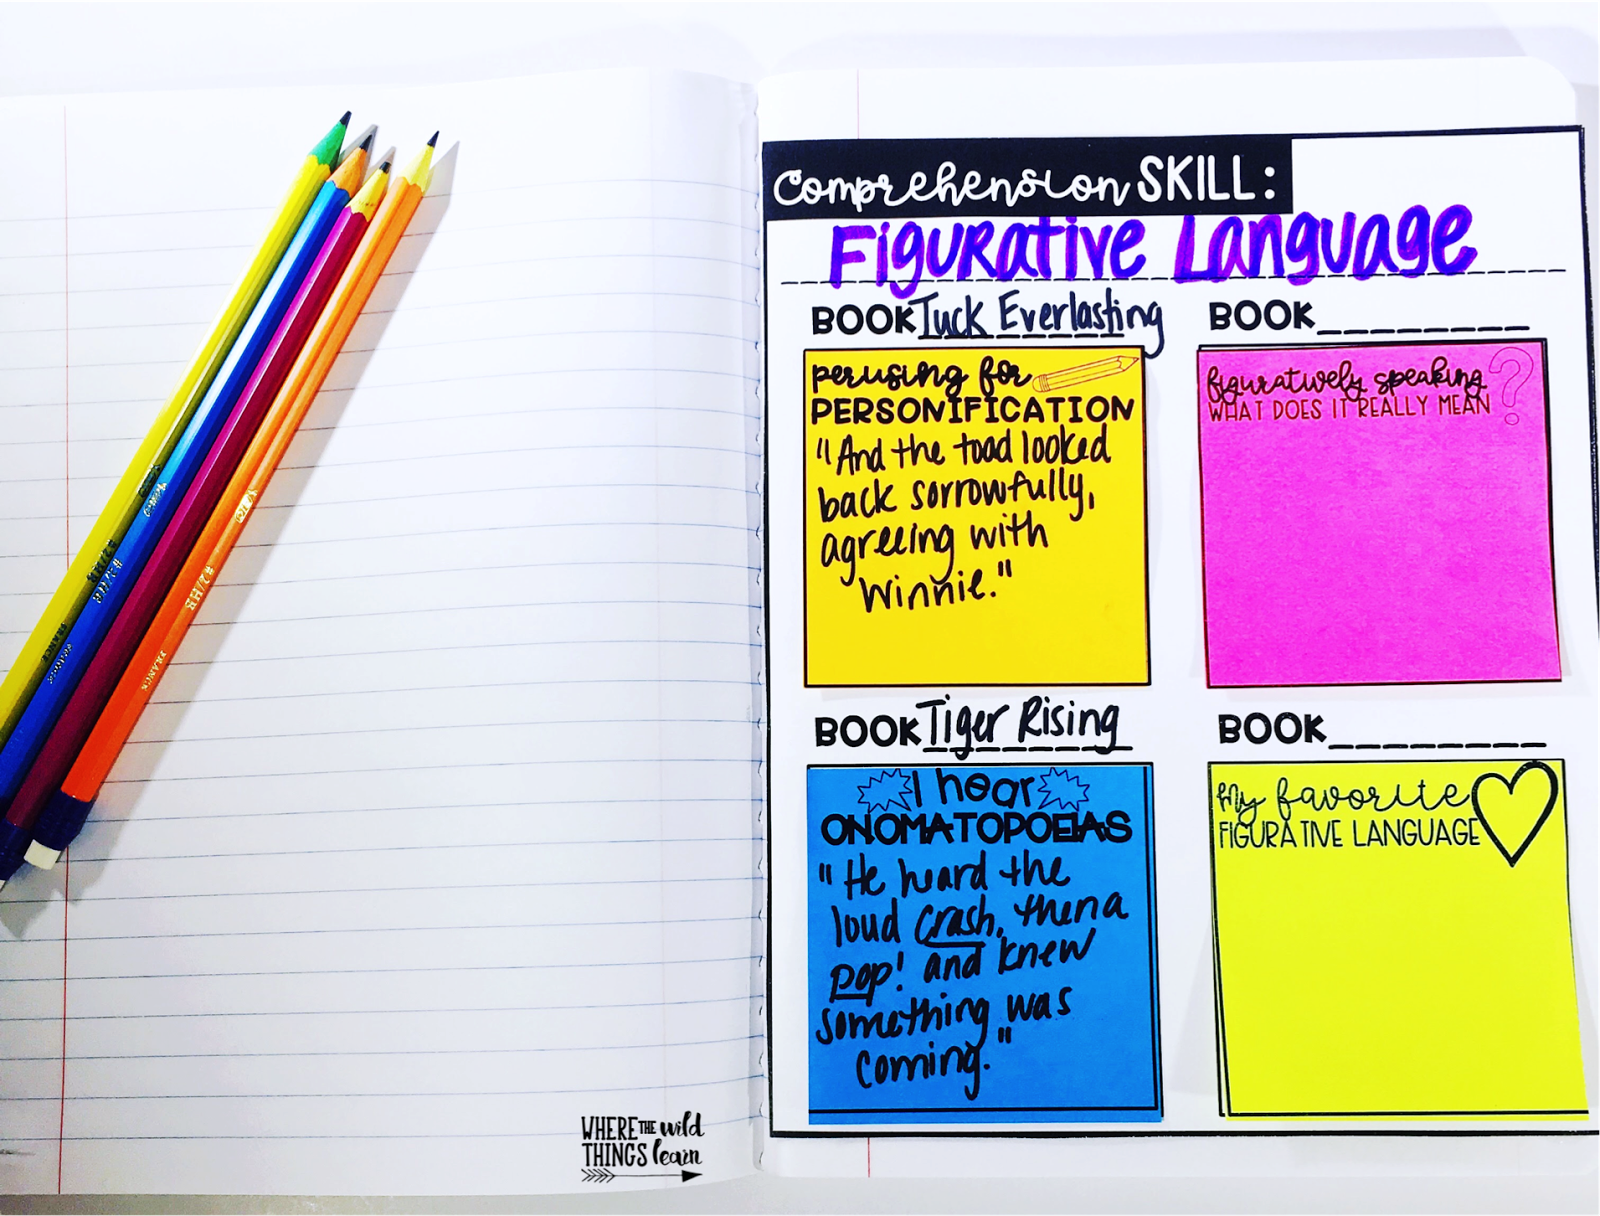 Comprehension SKILL:
Figurative Language
BOOK Tuck Everlasting
perusing for
PERSONIFICATION
"And the toad looked
back sorrowfully,
agreeing with
Winnie."
BOOK
figuratively speaking
WHAT DOES IT REALLY MEAN
?
BOOK Tiger Rising
I hear
ONOMATOPOEIAS
"He heard the
loud crash, then a
pop! and knew
something was
coming."
BOOK
my favorite
FIGURATIVE LANGUAGE
WHERE THE wild
THINGS learn
#2/HB
FRANCE